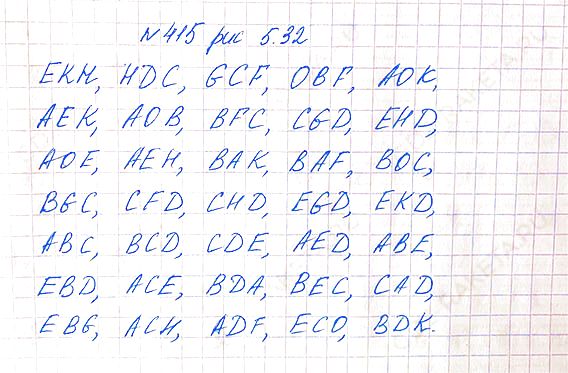 №415 рис 5.32
EKH, HDC, GCF, OBF, AOK,
AEK, AOB, BFC, CGD, EHD,
AOE, AEH, BAK, BAF, BOC,
BGC, CFD, CHD, EGD, EKD,
ABC, BCD, CDE, AED, ABE,
EBD, ACE, BDA, BEC, CAD,
EBG, ACH, ADF, ECO, BDK.